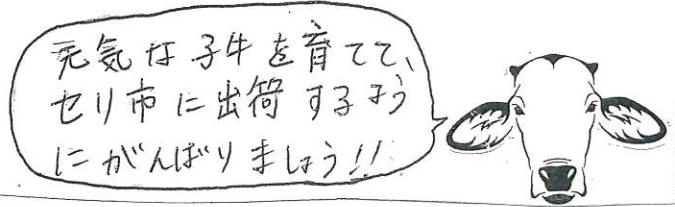 元気な子牛を育てて、
セリ市に出荷するよう
にがんばりましょう!!